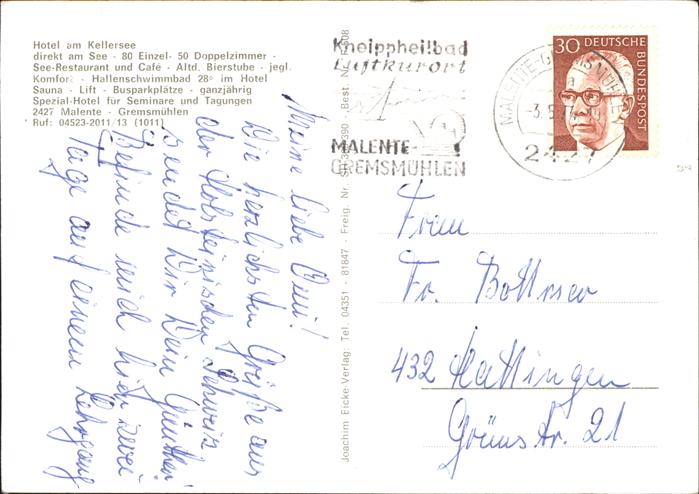 Hotel am Kellersee
direkt am See - 80 Einzel- 50 Doppelzimmer -
See-Restaurant und Café - Altd. Bierstube - jegl.
Komfort - Hallenschwimmbad 28° im Hotel
Sauna - Lift - Busparkplätze - ganzjährig
Spezial-Hotel für Seminare und Tagungen
2427 Malente - Gremsmühlen
Ruf: 04523-2011/13 (1011)
Meine liebe Omi!
Die herzlichsten Grüße aus
der Holsteinischen Schweiz
sendet Dir Dein Günther.
Befinde mich hier zwei
Tage auf einem Lehrgang
Joachim Eicke-Verlag: Tel. 04351 - 81847 - Freig. Nr. SH
Kneippheilbad
Luftkurort
MALENTE-
GREMSMÜHLEN
MALENTE-GREMSMÜHLEN
2427
30 DEUTSCHE
BUNDESPOST
Frau
Fr.
432 Hattingen
Grünstr. 21